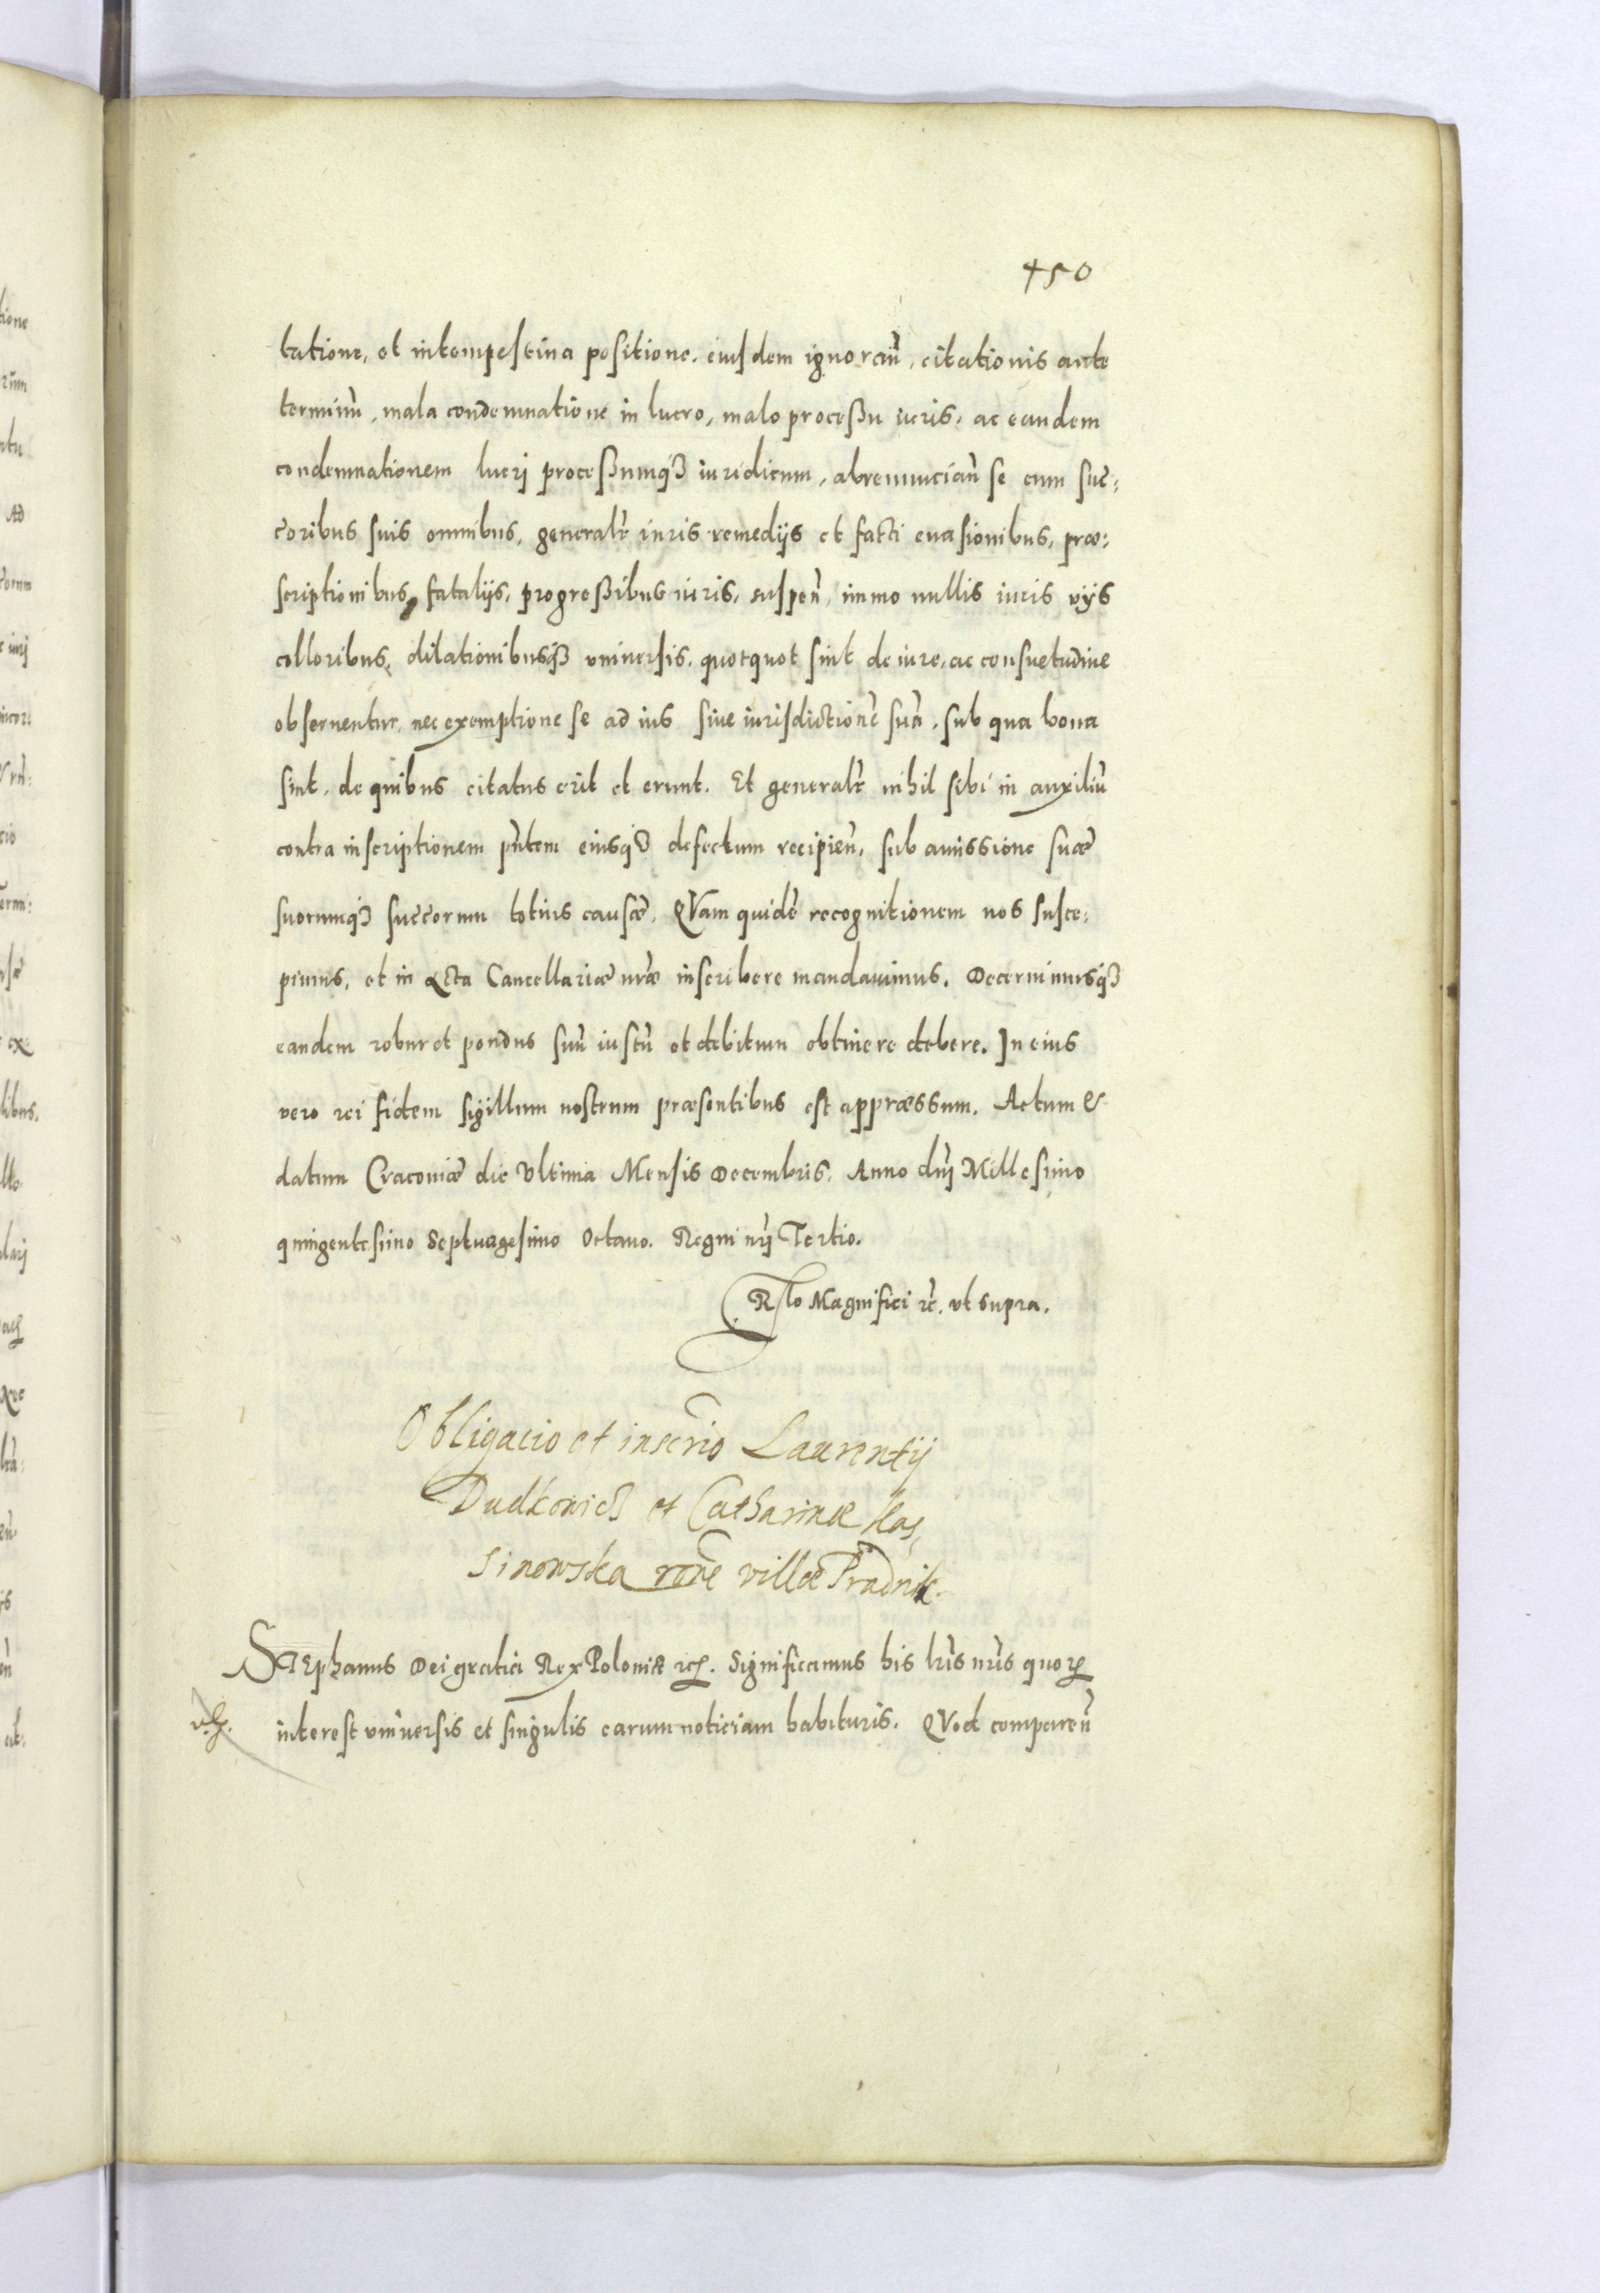 450
tatione, et intempestiua positione. eiusdem ignoran̄, citationis ante
terminū, mala condemnatione in lucro, malo processu iuris, ac eandem
condemnationem lucrj processumq iuridicum, abrenuncian̄ se cum suc:
coribus suis omnibus, generalr iuris remedijs et facti euasionibus, præ:
scriptionibus, fatalijs, progressibus iuris, suspen̄, immo nullis iuris vijs
colloribus, dilationibusq vniuersis, quotquot sint de iure, ac consuetudine
obseruentur, nec exemptione se ad ius siue iurisdictionē suā, sub qua bona
sint, de quibus citatus erit et erunt. Et generalr nihil sibi in auxiliū
contra inscriptionem pn̄tem eiusq defectum recipien̄, sub amissione suæ
suorumq succorum totius causæ. QVam quidē recognitionem nos susce:
pimus, et in Acta Cancellariæ nr̄æ inscribere mandauimus. Decernimusq
eandem robur et pondus suū iustū et debitum obtinere debere. In eius
vero rei fidem sigillum nostrum præsentibus est appræssum. Actum &
datum Cracoviæ die Vltima Mensis Decembris, Anno dn̄j Millesimo
quingentesimo Septuagesimo Octauo. Regni nr̄j Tertio.
Rlo Magnifici etc. vt supra.
Obligacio et inscrio Laurentij
Dudkowicz et Catharinæ Kos,
sinowska rōne villæ Prądnik.
STEphanus Dei gratia Rex Poloniæ etc. Significamus his lr̄is nr̄is quorum
interest vniuersis et singulis earum noticiam habituris. QVod comparen̄